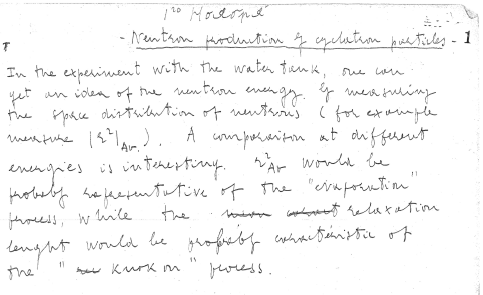 - Neutron production of cyclotron particles - 1
In the experiment with the water tank, one can
get an idea of the neutron energy. By measuring
the space distribution of neutrons (for example
measure |r²|Av.). A comparaison at different
energies is interesting. r²Av would be
probably representative of the "evaporation"
process, while the relaxation
lenght would be probably caractéristic of
the "knok on" process.